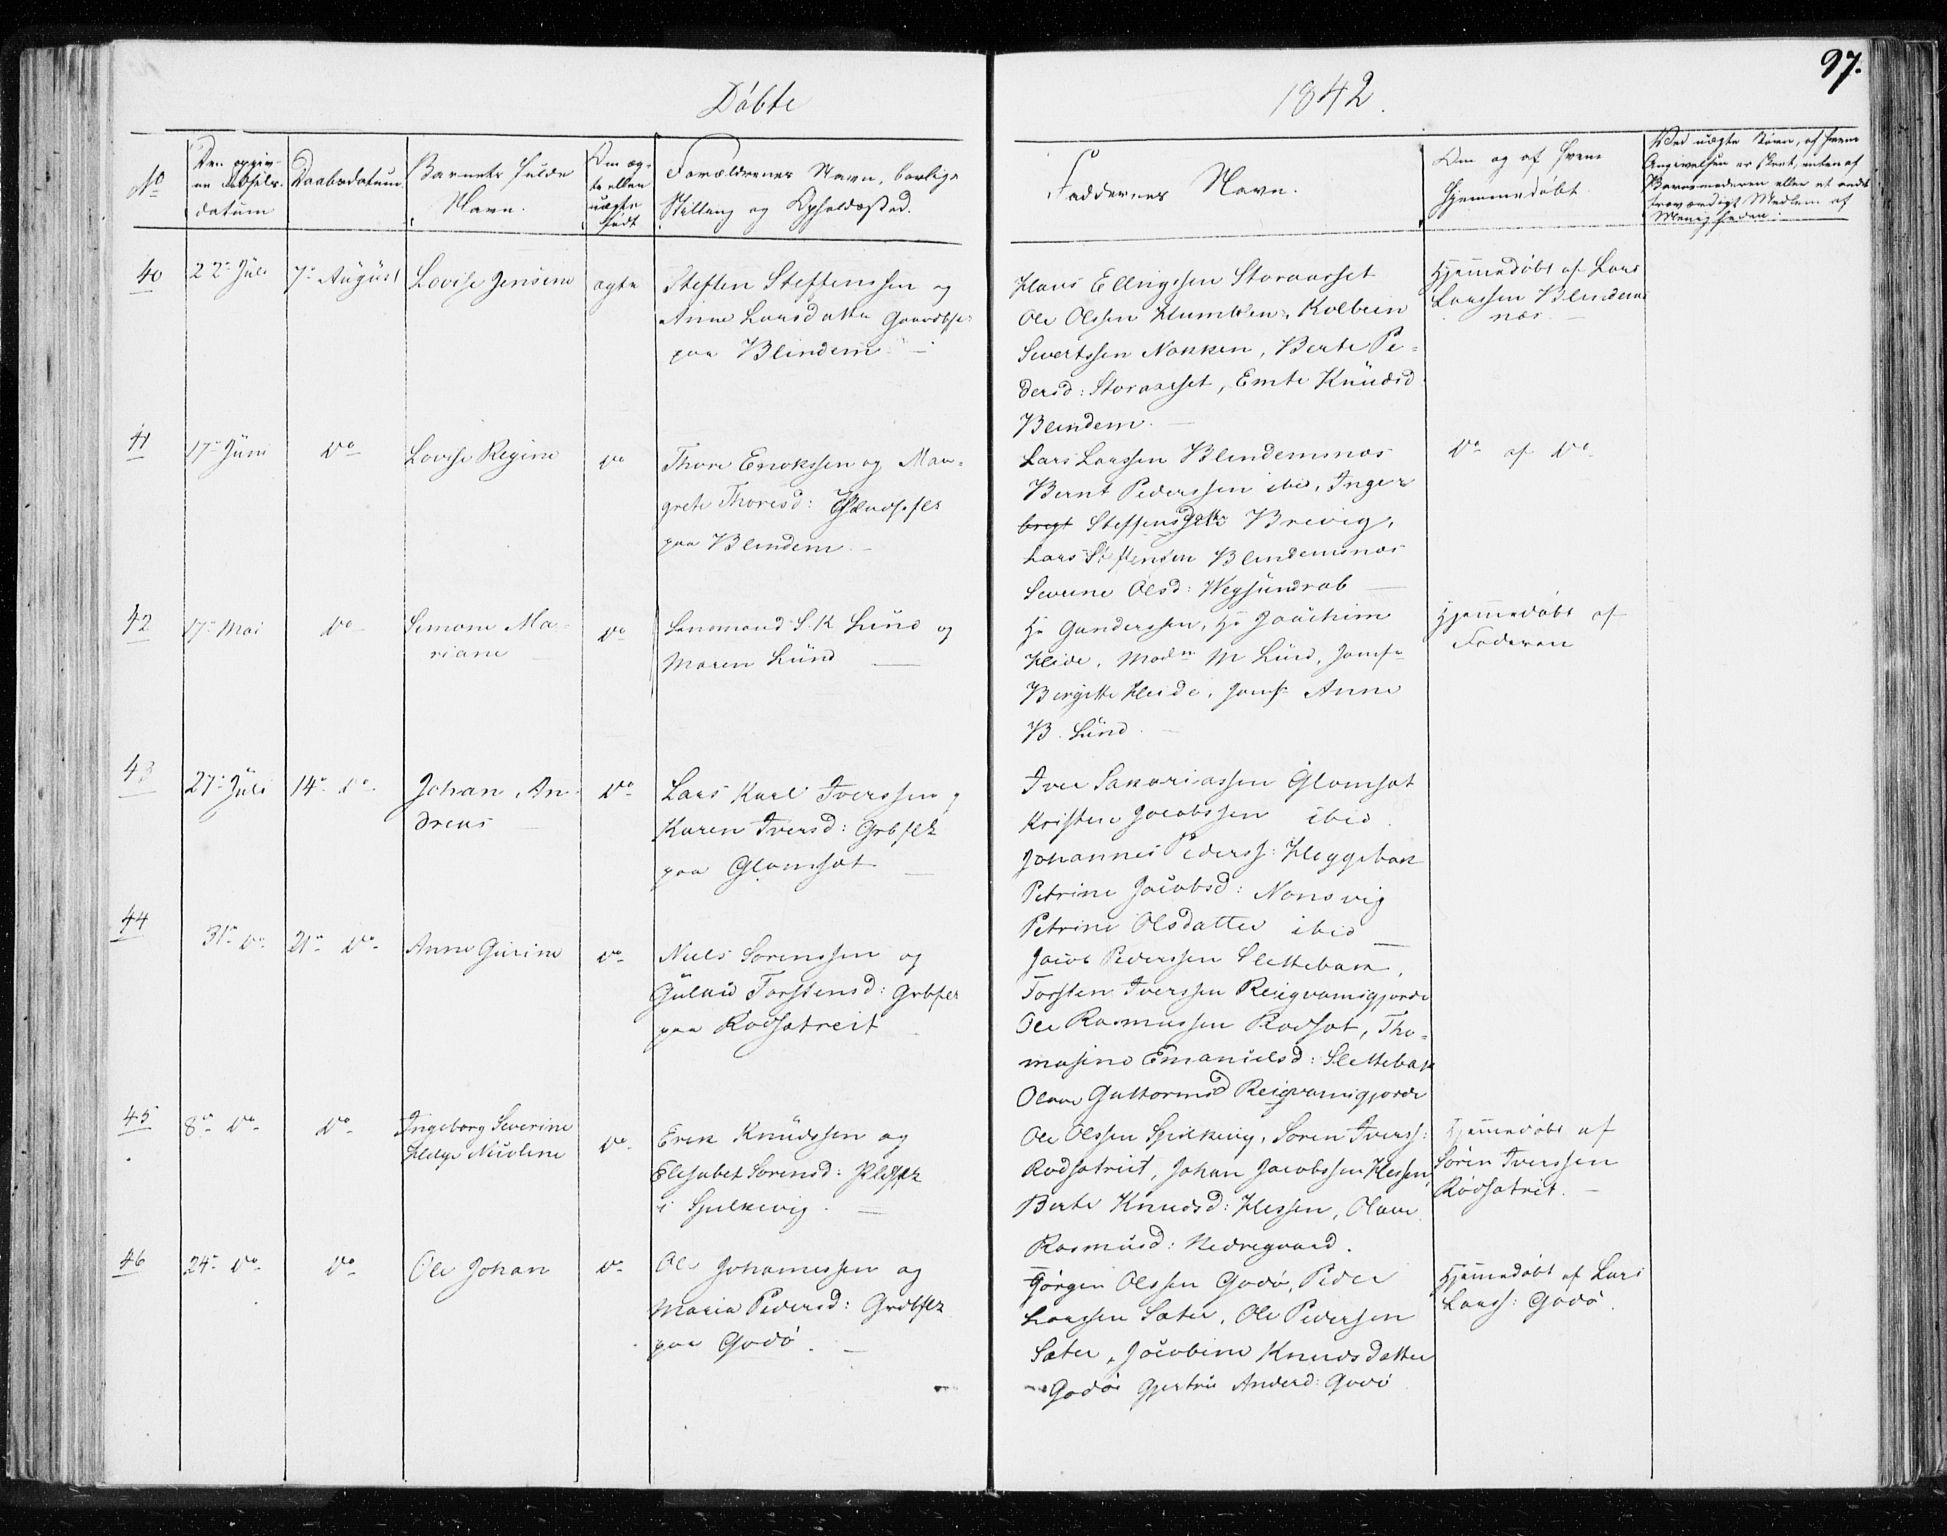 97.
Döbte
1842.
No
Den opgiv-
ne Födsels-
datum
Daabsdatum
Barnets fulde
Navn.
Om æg-
te eller
uægte
födt
Forældrenes Navn, borlige
Stilling og Opholdssted.
Faddernes Navn.
Om og af hvem
hjemmedöbt.
Ved uægte Börn, af hvem
Angivelsen er skeet, enten af
Barnemoderen eller et andet
troværdigt Medlem af
Menigheden.
40
22de Juli
7de August
Lovise Jensine
ægte
Steffen Steffenssen og
Anne Larsdatter Gaardbr:
paa Blindem. —
Hans Ellingssen Storaaset
Ole Olssen Humblen, Kolbein
Sivertssen Nakken, Berte Pe-
dersd: Storaaset, Emte Knudsd
Blindem. —
Hjemmedöbt af Lars
Larssen Blindems
næs —
41
17de Juni
do
Lovise Regine
do
Thore Enokssen og Mar-
grete Thoresd:
paa Blindem. —
Lars Larssen Blindemsnæs
Bernt Pederssen ibid, Inger
bregt Steffensdatter Brevig,
Lars Steffensen Blindemsnæs
Severine Olsd: Wegsundrab —
do af do
42
17de Mai
do
Simone Ma-
riane —
do
Lensmand S. K. Lund og
Maren Lund —
Hr Gunderssen, Hr Joachim
Heide, Madm M Lund, Jomfr
Bergitte Heide, Jomfr Anne
B. Lund. —
Hjemmedöbt af
Faderen
43
27de Juli
14de do
Johan An-
dreas —
do
Lars Karl Iverssen og
Karen Iversd: Grbflk
paa Glomsæt —
Iver Sakariassen Glomsæt
Kristen Jacobssen ibid.
Johannes Pederss: Heggebak
Petrine Jacobsd: Nonsvig
Petrine Olsdatter ibid —
44
31te do
21de do
Anne Gurine
do
Niels Sorenssen og
Torstensd: Grbflk
paa Rodsætreit —
Jacob Pederssen Slettebak,
Torsten Iverssen Reigvamsgjerde
Ole Rasmussen Rodsæt, Tho-
masine Emanuelsd: Slettebak
Olave Guttormsd Reigvamsgjerde
45
8de do
do
Ingeborg Severine
Helge Nicoline
do
Erik Knudssen og
Elisabet Sorensd: Pldsflk
i Spilkevig. —
Ole Olssen Spilkevig, Soren Iverss:
Rodsætreit, Johan Jacobssen Hessen,
Berte Knudsd: Hessen, Olave
Rasmusd: Nedregaard.
Hjemmedöbt af
Sören Iverssen
Rödsætreit. —
46
24de do
do
Ole Johan
do
Ole Johannessen og
Maria Pedersd: Grdbflk
paa Godö. —
Görgen Olssen Godö, Peder
Larssen Sæter, Ole Pederssen
Sæter, Jacobine Knudsdatter
Godöe Gjertrue Andersd: Godö
Hjemmedöbt af Lars
Larss: Godö.